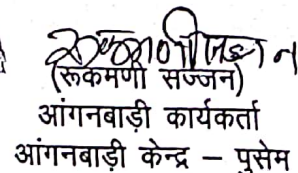 (रूकमणी सज्जन)
आंगनबाड़ी कार्यकर्ता
आंगनबाड़ी केन्द्र – पुसेम